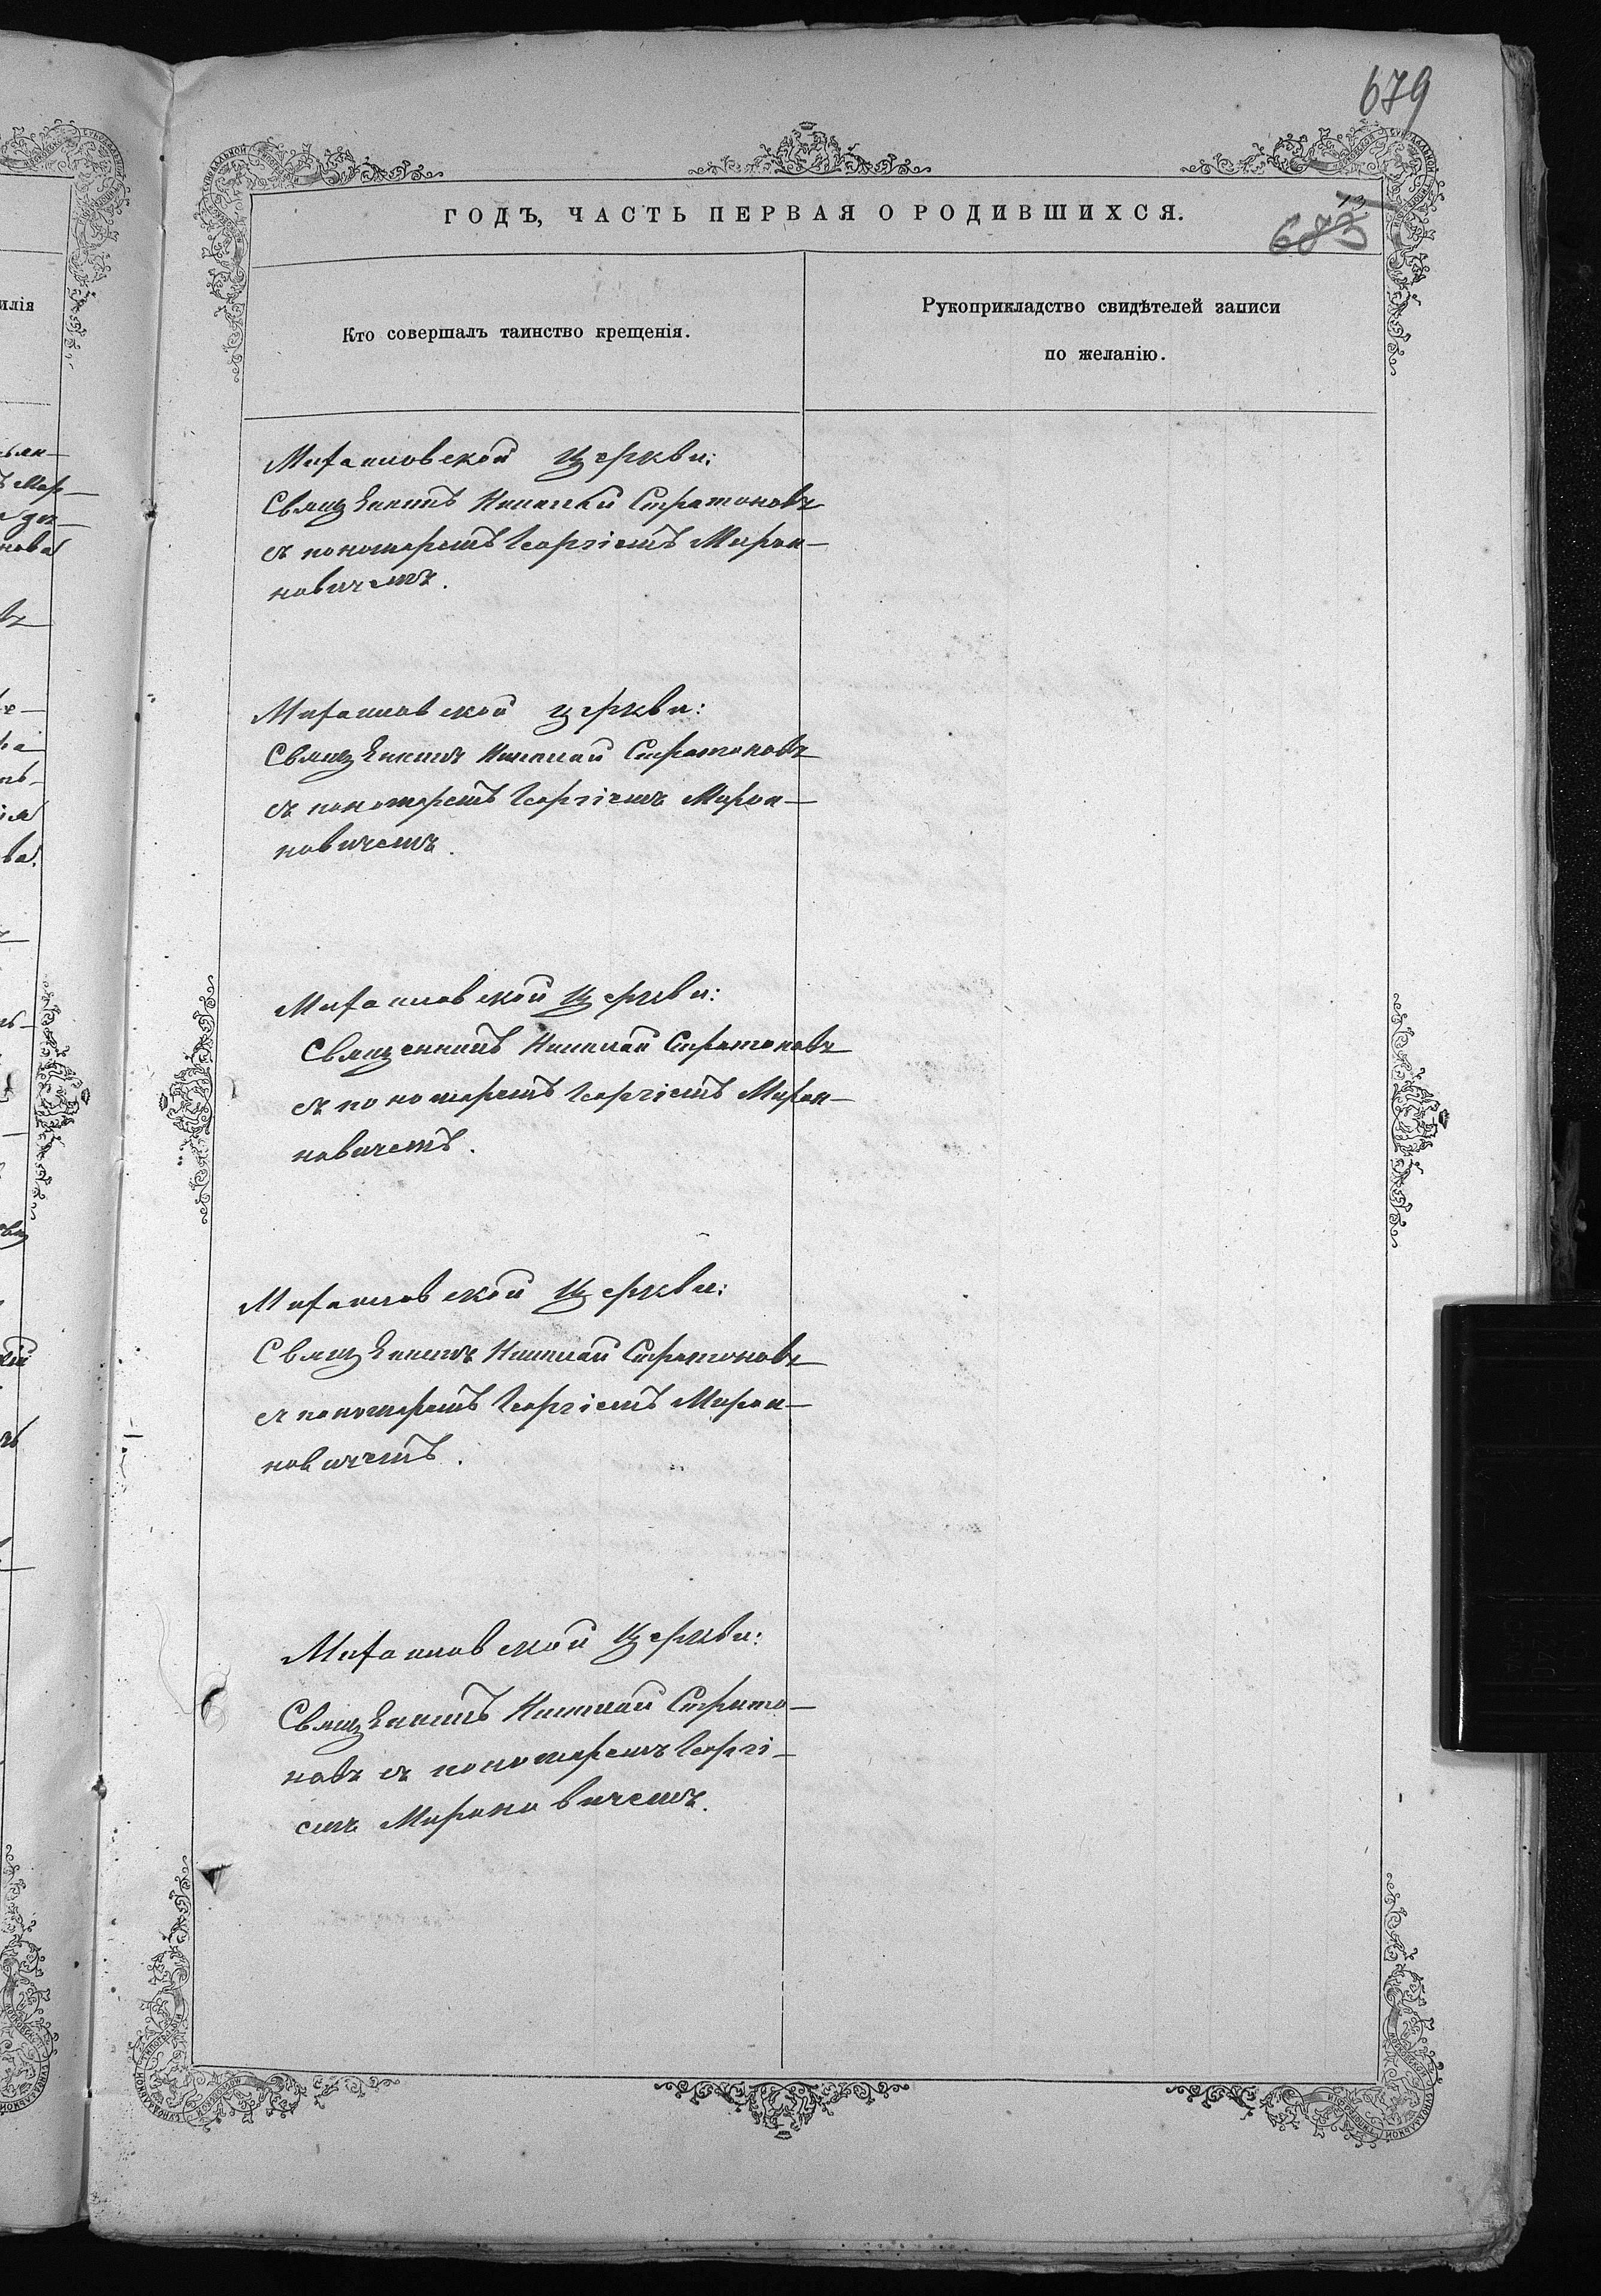 679
ГОДЪ, ЧАСТЬ ПЕРВАЯ О РОДИВШИХСЯ.
Кто совершалъ таинство крещенія.
Рукоприкладство свидѣтелей записи
по желанію.
Михаиловской Церкви:
Священникъ Николай Стратоновъ
съ пономаремъ Георгіемъ Миро-
новичемъ.
Михаиловской церкви:
Священникъ Николай Стратоновъ
съ пономаремъ Георгіемъ Миро-
новичемъ.
Михаиловской Церкви:
Священникъ Николай Стратоновъ
съ пономаремъ Георгіемъ Миро-
новичемъ.
Михаиловской Церкви:
Священникъ Николай Стратоновъ
съ пономаремъ Георгіемъ Миро-
новичемъ.
Михаиловской Церкви:
Священникъ Николай Страто-
новъ съ пономаремъ Георгі-
емъ Мироновичемъ.